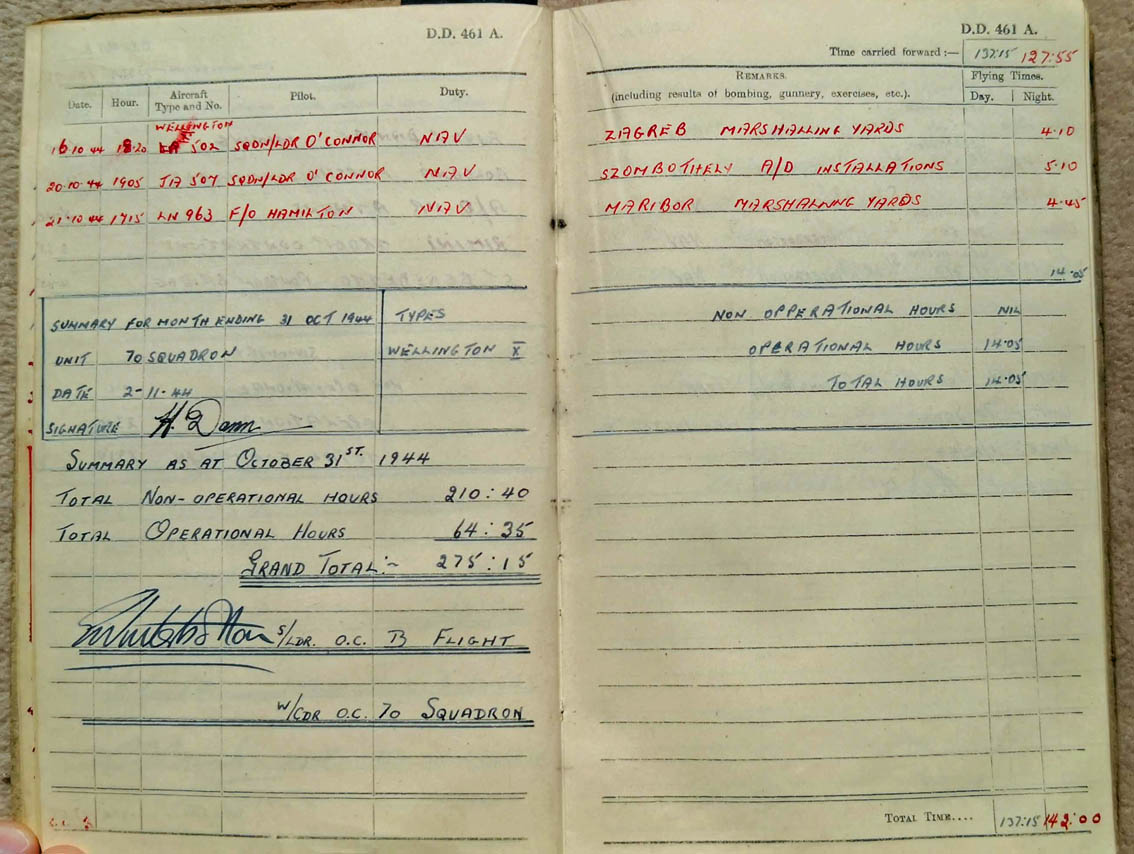 D.D. 461 A.
Date. Hour. Aircraft Type and No. Pilot. Duty.
WELLINGTON X
16·10·44 18·20 502 SQDN/LDR O'CONNOR NAV
20·10·44 1905 JA 507 SQDN/LDR O'CONNOR NAV
21·10·44 1715 LN 963 F/O HAMILTON NAV
SUMMARY FOR MONTH ENDING 31 OCT 1944 TYPES
UNIT 70 SQUADRON WELLINGTON X
DATE 2-11-44
SIGNATURE H. Dann
SUMMARY AS AT OCTOBER 31ST. 1944
TOTAL NON-OPERATIONAL HOURS 210:40
TOTAL OPERATIONAL HOURS 64:35
GRAND TOTAL:- 275:15
S/LDR. O.C. B FLIGHT
W/CDR O.C. 70 SQUADRON
D.D. 461 A.
Time carried forward:— 137:15 127:55
REMARKS. Flying Times.
(including results of bombing, gunnery, exercises, etc.). Day. Night.
ZAGREB MARSHALLING YARDS 4·10
SZOMBOTHELY A/D INSTALLATIONS 5·10
MARIBOR MARSHALLING YARDS 4·45
14·05
NON OPPERATIONAL HOURS NIL
OPERATIONAL HOURS 14·05
TOTAL HOURS 14·05
TOTAL TIME.... 137:15 142:00